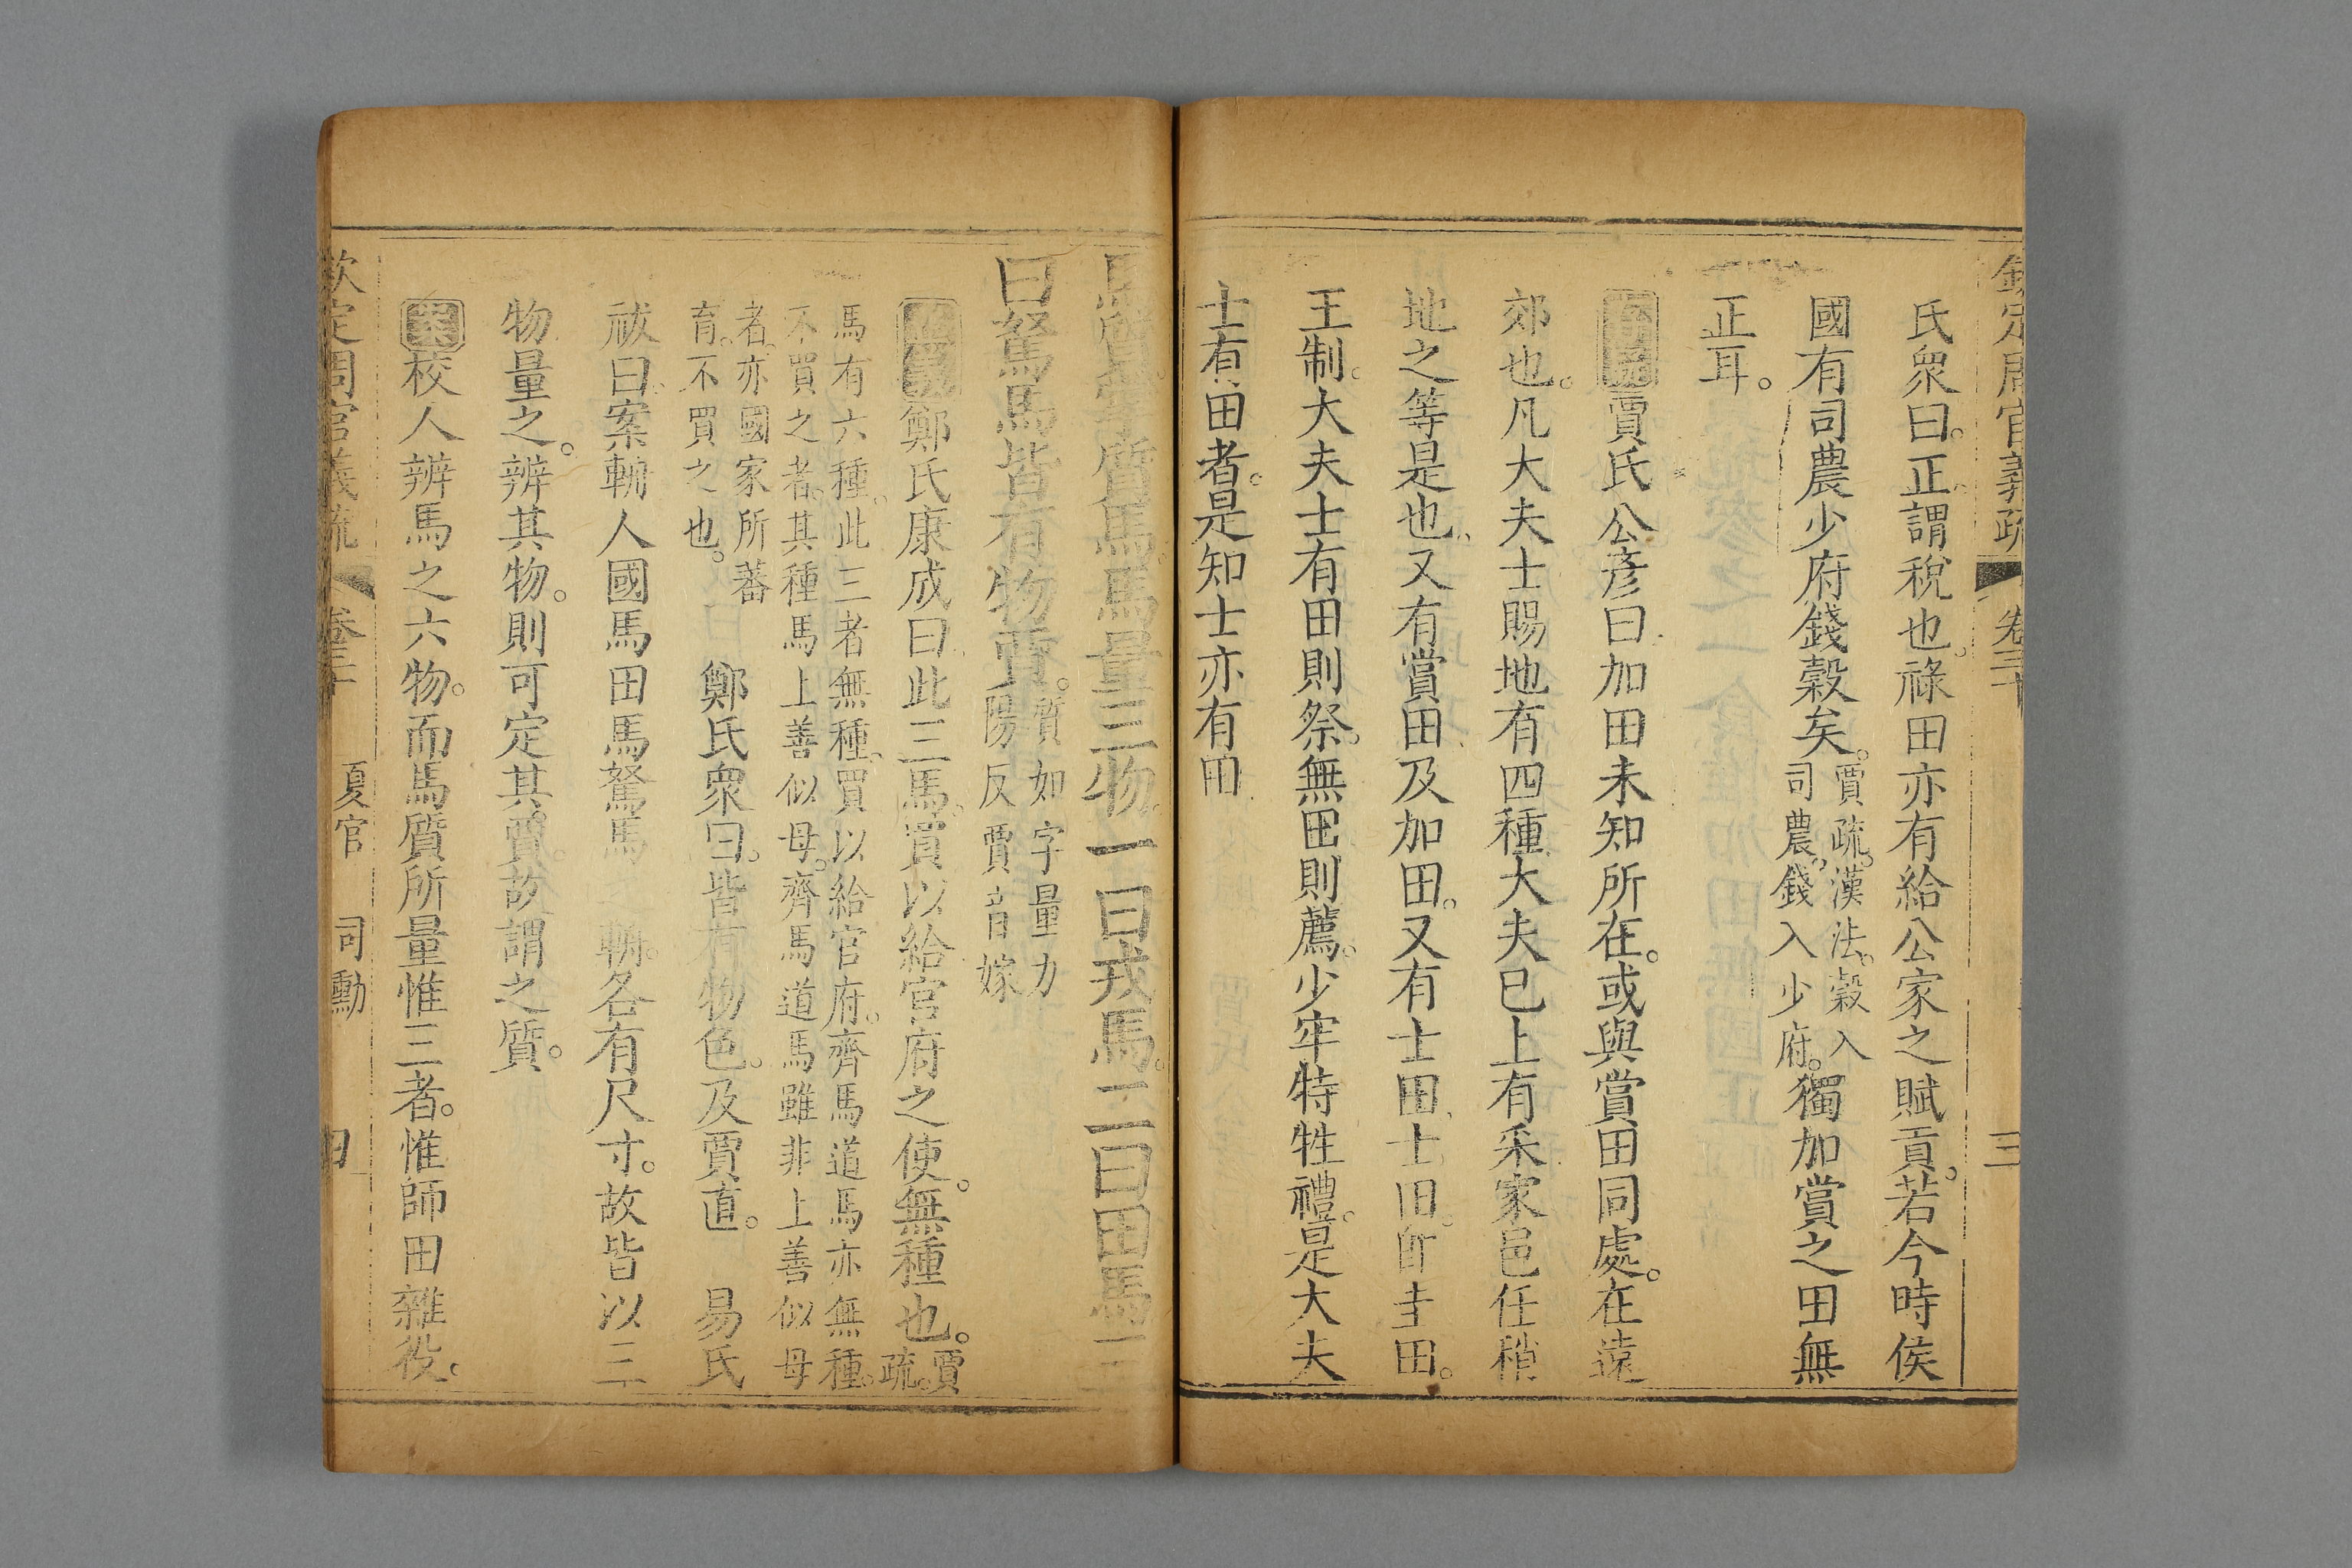 欽定周官義疏 卷三十 三
氏衆曰正謂稅也祿田亦有給公家之賦貢若今時侯
國有司農少府錢穀矣賈疏漢法穀入司農錢入少府獨加賞之田無
正耳。
賈氏公彦曰加田未知所在或與賞田同處在遠
郊也凡大夫士賜地有四種大夫已上有采家邑任稍
地之等是也又有賞田及加田又有士田士田即圭田。
王制大夫士有田則祭無田則薦少牢特牲禮是大夫
士有田者是知士亦有田
馬質掌質馬馬量三物一曰戎馬二曰田馬三
曰駑馬皆有物賈質如字量力陽反賈音嫁
鄭氏康成曰此三馬買以給官府之使無種也。賈疏
馬有六種此三者無種買以給官府齊馬道馬亦無種
不買之者其種馬上善似母齊馬道馬雖非上善似母
者亦國家所蕃
育不買之也 鄭氏衆曰皆有物色及賈直。 易氏
祓曰案輈人國馬田馬駑馬之輈各有尺寸故皆以三
物量之辨其物則可定其賈故謂之質。
案校人辨馬之六物而馬質所量惟三者惟師田雜役。
欽定周官義疏 卷三十 夏官 司勳 四